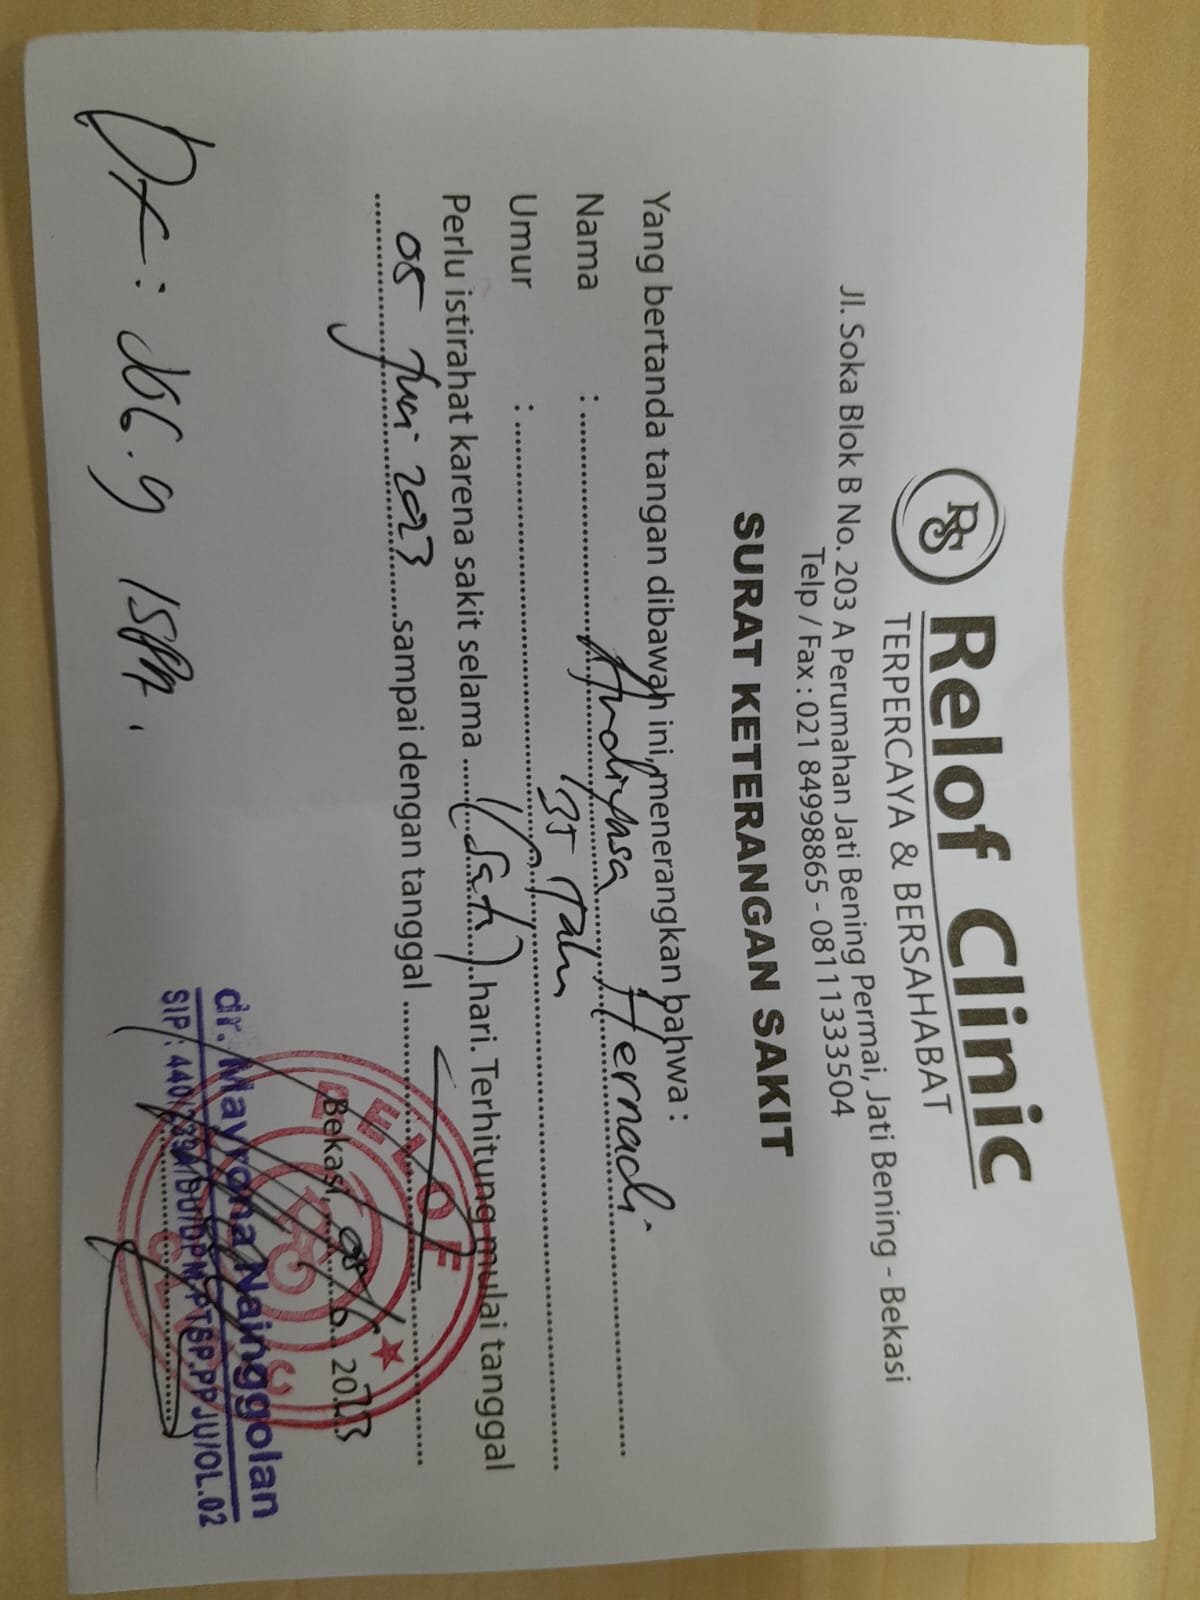 RS Relof Clinic
TERPERCAYA & BERSAHABAT
Jl. Soka Blok B No. 203 A Perumahan Jati Bening Permai, Jati Bening - Bekasi
Telp / Fax : 021 84998865 - 08111333504
SURAT KETERANGAN SAKIT
Yang bertanda tangan dibawah ini, menerangkan bahwa :
Nama : Andiyasa Hernadi
Umur : 35 Tahun
Perlu istirahat karena sakit selama (Satu) hari. Terhitung mulai tanggal
05 Juni 2023 sampai dengan tanggal
RELOF
Bekasi, 05/6 2023
dr. Mayrona Nainggolan
SIP : 440/
DPMPTSP.PPJU/OL.02
Dx : J06.9 ISPA.